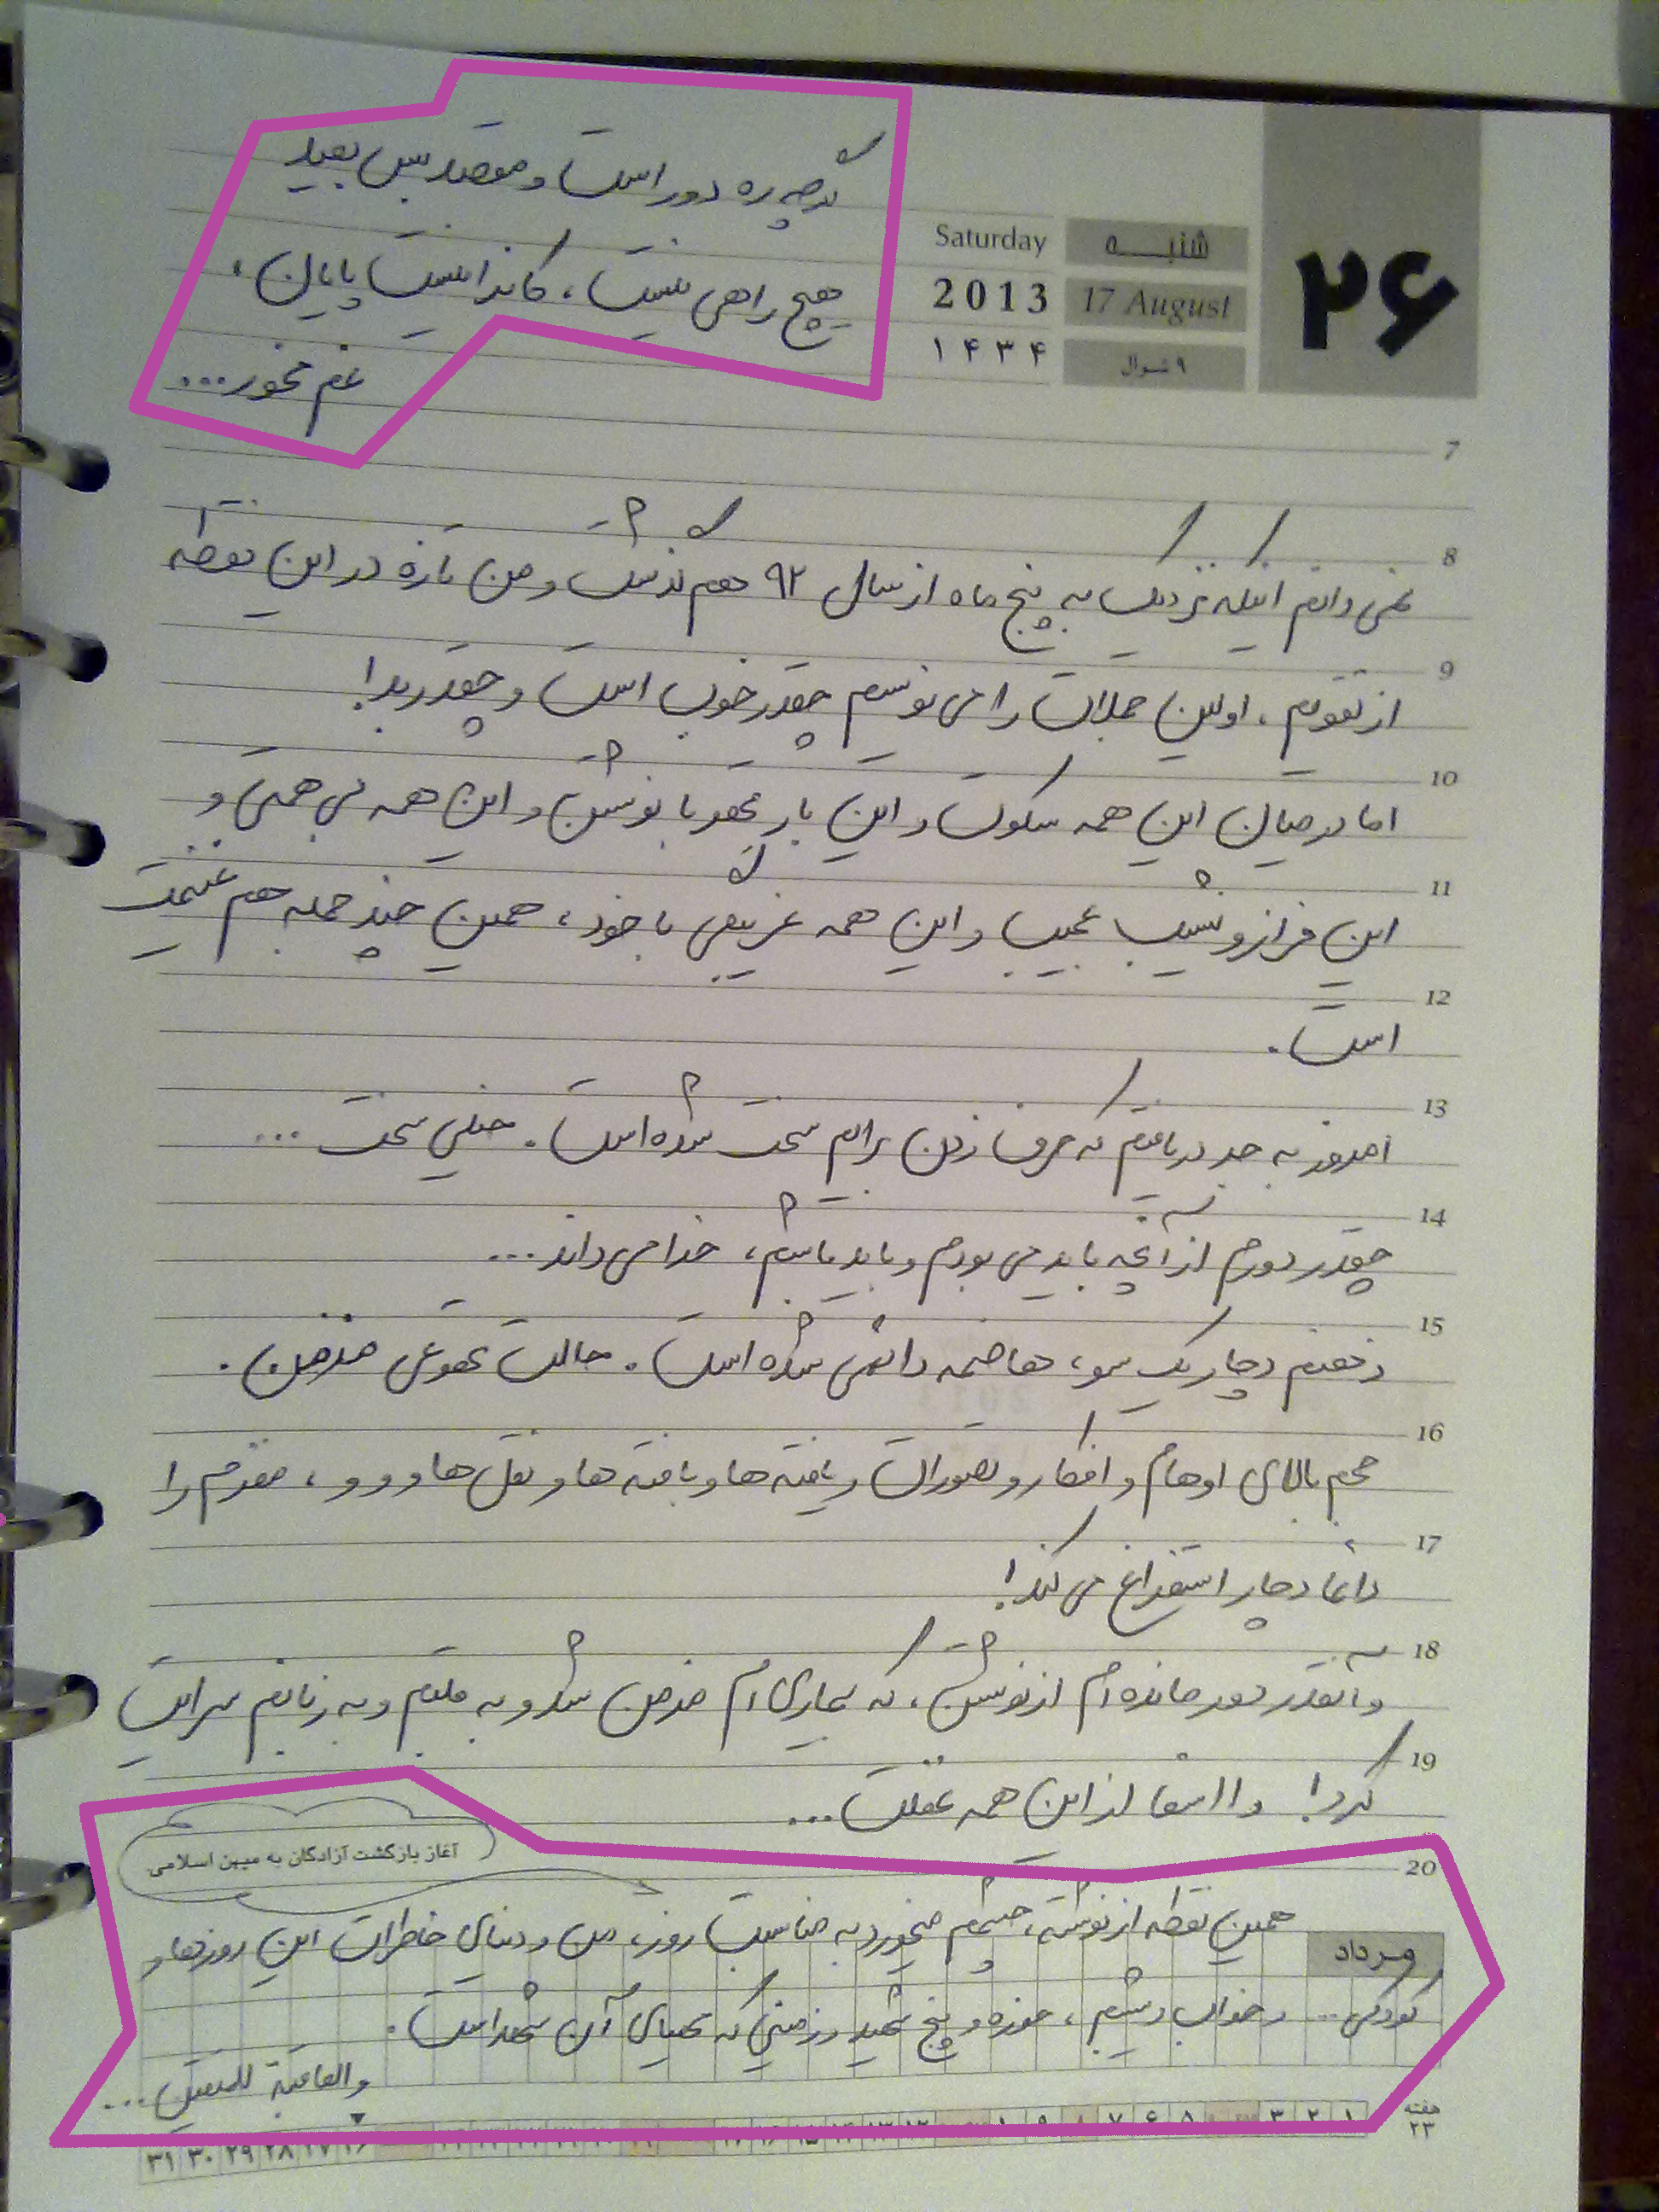 گرچه ره دور است و مقصد بس بعید
هیچ راهی نیست، کاندر نیست پایان،
غم مخور...
۲۶
شنبه
Saturday
17 August
2013
۹ شوال
۱۴۳۴
7
8
نمی دانم اینکه نزدیک به پنج ماه از سال ۹۲ هم گذشت و من تازه در این نقطه
9
از تقویم، اولین جملات را می نویسم چقدر خوب است و چقدر بد!
10
اما در میان این همه سکوت و این بار قهر با نوشتن و این همه بی همتی و
11
این فراز و نشیب عجیب و این همه غریبگی با خود، همین چند جمله هم غنیمت
12
است.
13
امروز به جد دریافتم که حرف زدن برایم سخت شده است. خیلی سخت...
14
چقدر دورم از آنچه باید می بودم و باید باشم، خدا می داند...
15
ذهنم دچار یک سوء هاضمه دائمی شده است. حالت تهوعی مزمن.
16
حجم بالای اوهام و افکار و تصورات و یافته ها و بافته ها و نقل ها و و و، مغزم را
17
دائما دچار استفراغ می کند!
18
و آنقدر دور مانده ام از نوشتن، که بیماری ام مزمن شد و به قلبم و به زبانم سرایت
19
کرد! وا اسفا از این همه غفلت...
20
آغاز بازگشت آزادگان به میهن اسلامی
همین نقطه از نوشته، چشمم میخورد به مناسبت روز، من و دنیای خاطرات این روزها و
مرداد
کودکی... و خواب دیشبم، موزه و پنج شهید و زمینی که مهیای آن شهداست.
والعاقبة للمتقین...
هفته ۲۳